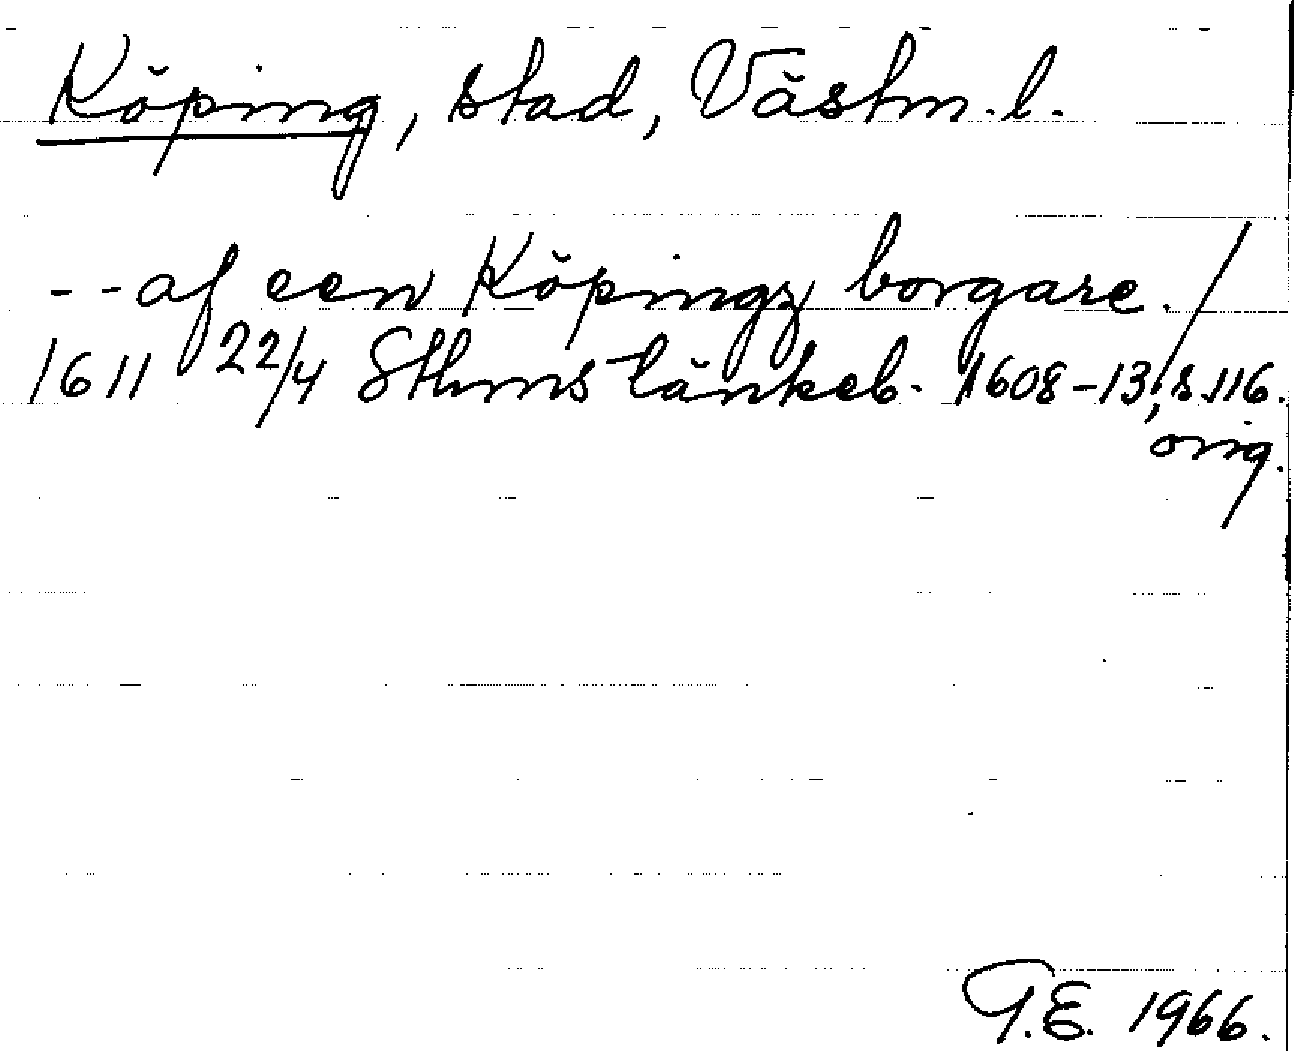 Köping, stad, Västm. l.
-- af een Köpingz borgare. /
1611 22/4 Sthms tänkeb. 1608-13, s. 116.
orig.
G.E. 1966.